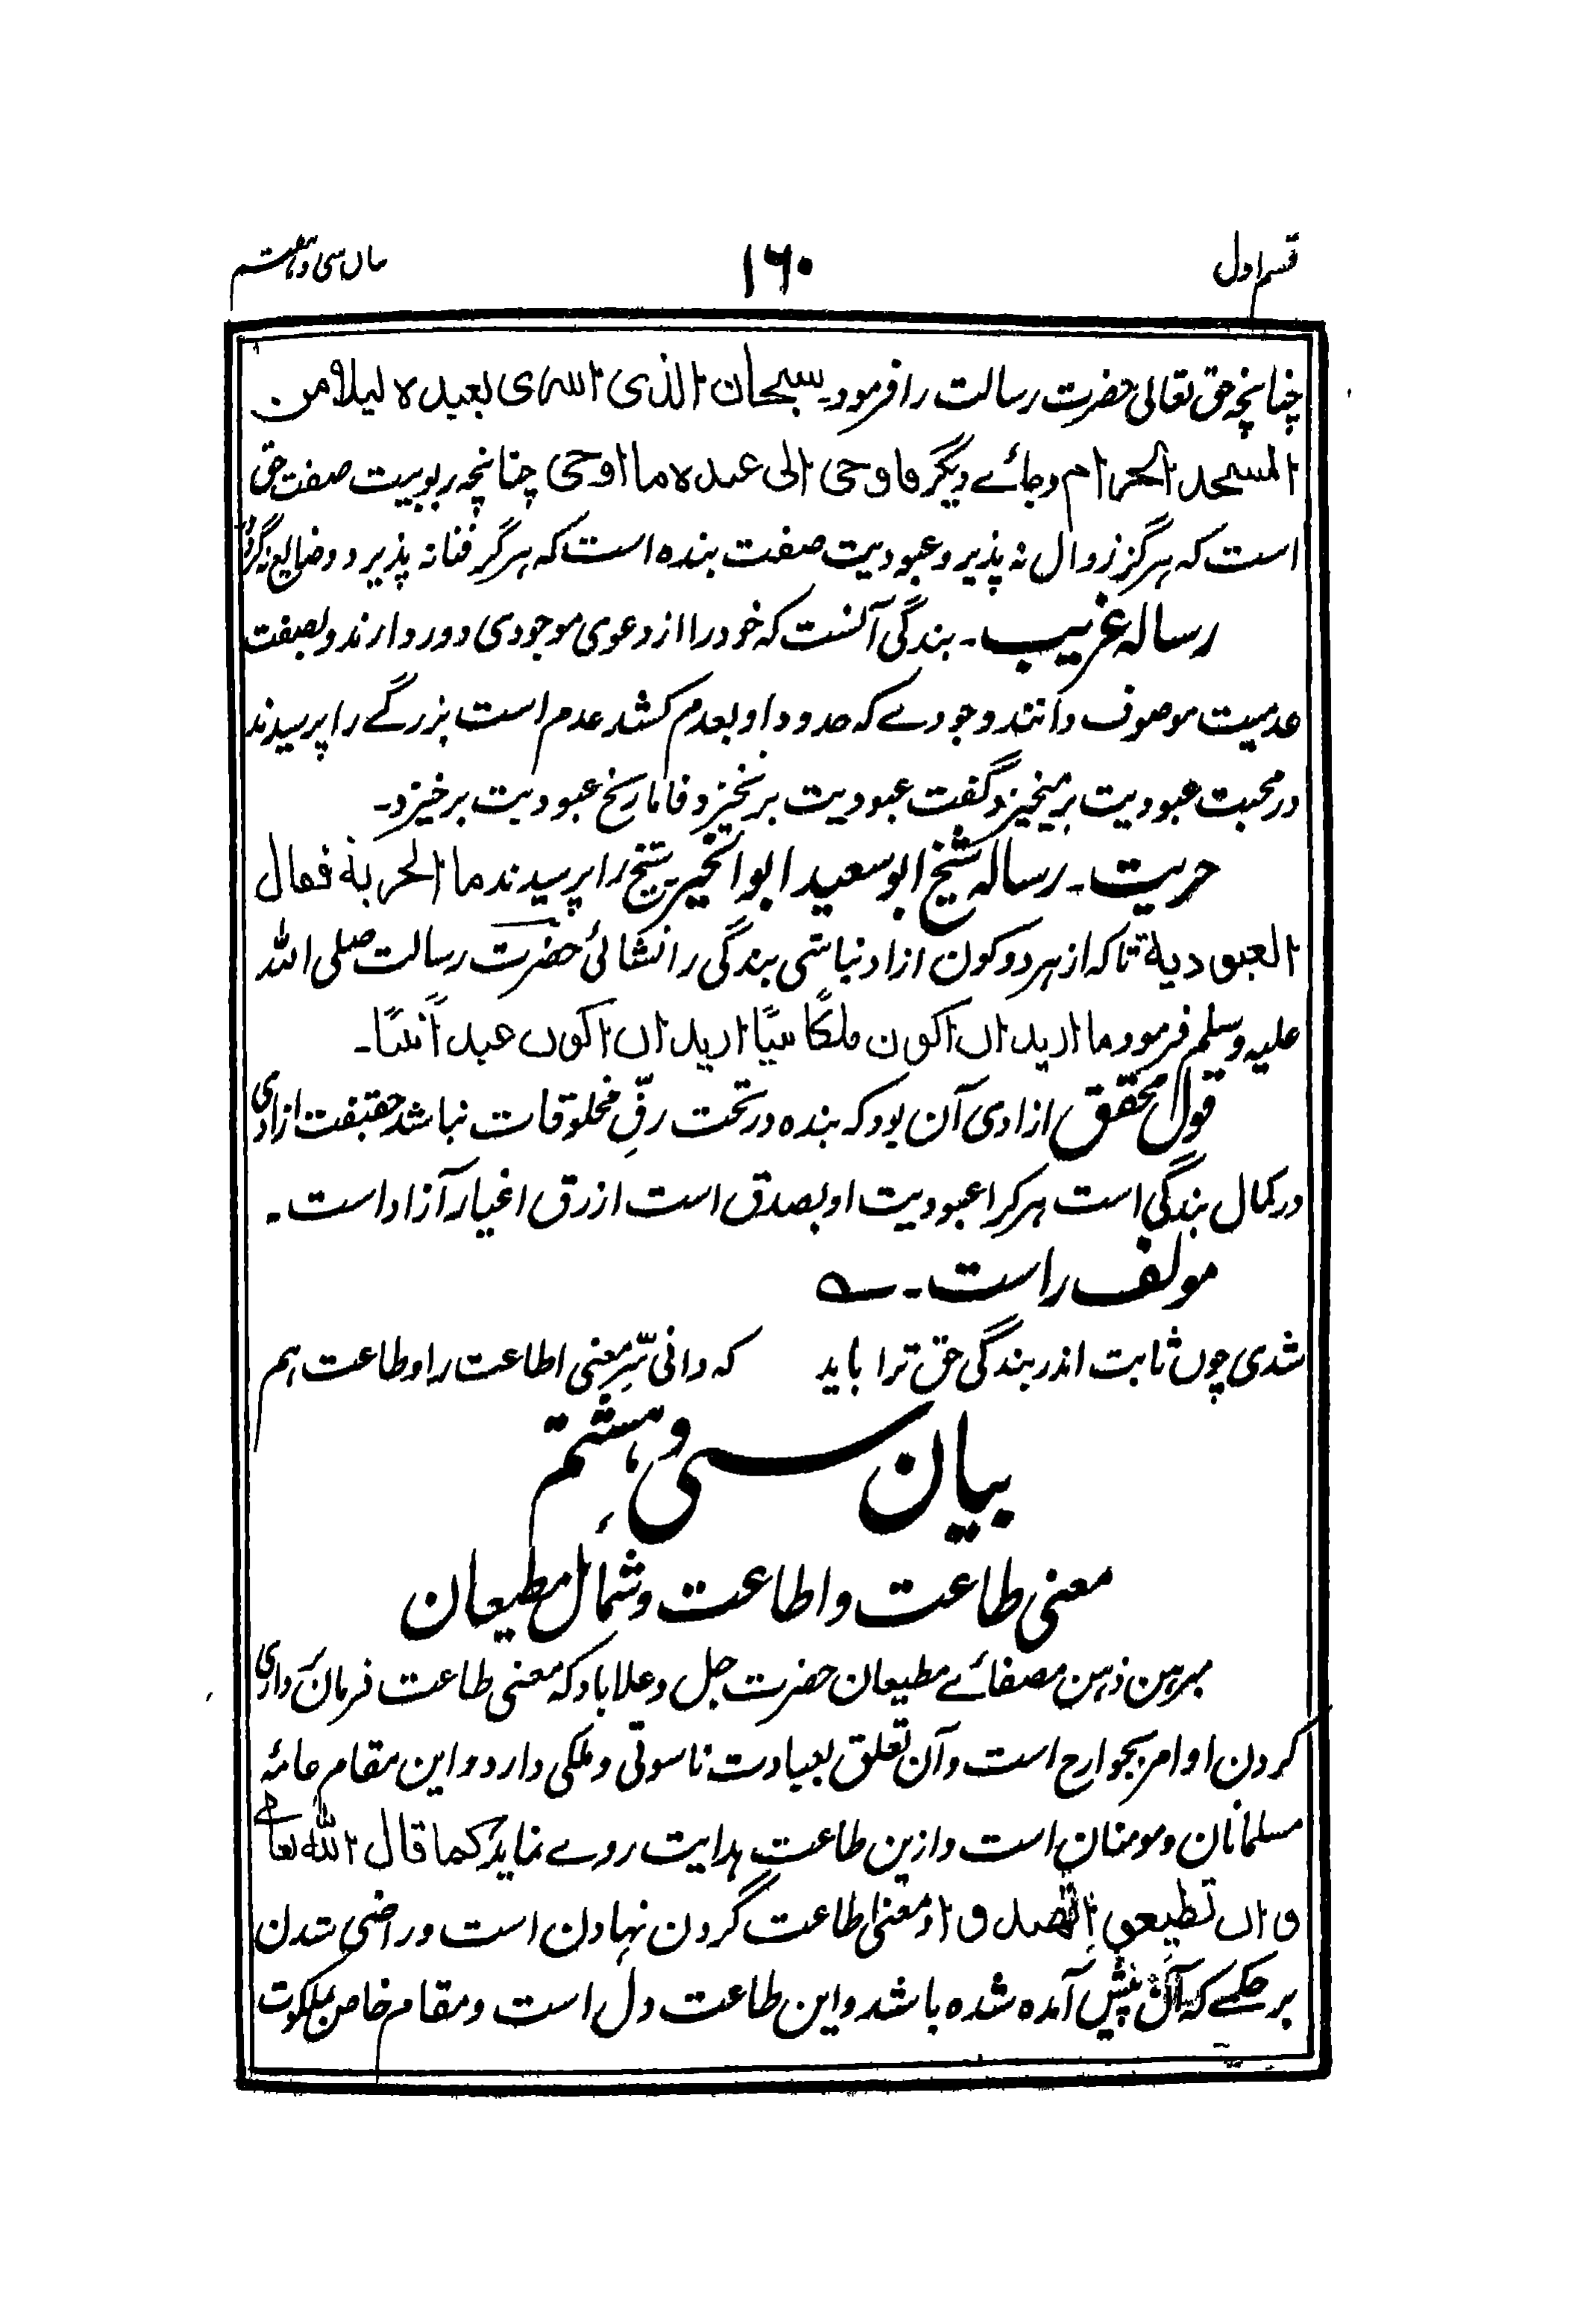 قسم اول
۱۶۰
بیان سی و ہفتم
چنانچہ حق تعالی حضرت رسالت را فرمود۔ سبحان الذی اسری بعبدہ لیلا من
المسجد الحرام وجائے دیگر فاوحی الی عبدہ ما اوحی چنانچہ ربوبیت صفت حق
است کہ ہرگز زوال نہ پذیر وعبودیت صفت بندہ است کہ ہرگز فنا نہ پذیرد وضایع نہ گردد
رسالہ غریب۔ بندگی آنست کہ خود را از دعوی موجودی دور دارند وبصفت
عدمیت موصوف دانند وجودے کہ حدود او بعدم کشد عدم است بزرگے را پرسیدند
در محبت عبودیت برمیخیزد گفت عبودیت برنخیزد فاما رنج عبودیت برخیزد۔
حریت۔ رسالہ شیخ ابو سعید ابو الخیر۔ شیخ را پرسیدند ما الحریة فقال
العبودیة تا کہ از ہر دو کون ازاد نباشی بندگی را نشائی حضرت رسالت صلی اللہ
علیہ وسلم فرمود ما ارید ان اکون ملکا نبیا ارید ان اکون عبدا نبیا۔
قول محقق ازادی آن بود کہ بندہ در تحت رقِّ مخلوقات نباشد حقیقت ازادی
در کمال بندگی است ہر کرا عبودیت او بصدق است از رق اغیار آزاد است۔
مولف راست۔ ؎
شدی چوں ثابت اندر بندگی حق ترا باید کہ دانی سِّرِ معنی اطاعت را وطاعت ہم
بیان سی و ہشتم
معنی طاعت و اطاعت و شمائل مطیعان
مبرہن ذہن مصفائے مطیعان حضرت جل وعلا باد کہ معنی طاعت فرمان برداری
کردن اوامر بجوارح است وآن تعلق بعبادت ناسوتی وملکی دارد واین مقام عامۂ
مسلمانان ومومنان است وازین طاعت ہدایت روے نماید کما قال اللہ تعالے
وان تطیعوہ تھتدوا و معنی اطاعت گردن نہادن است وراضی شدن
بر حکمے کہ آن پیش آمدہ شدہ باشد واین طاعت دل است ومقام خاص بملکوت